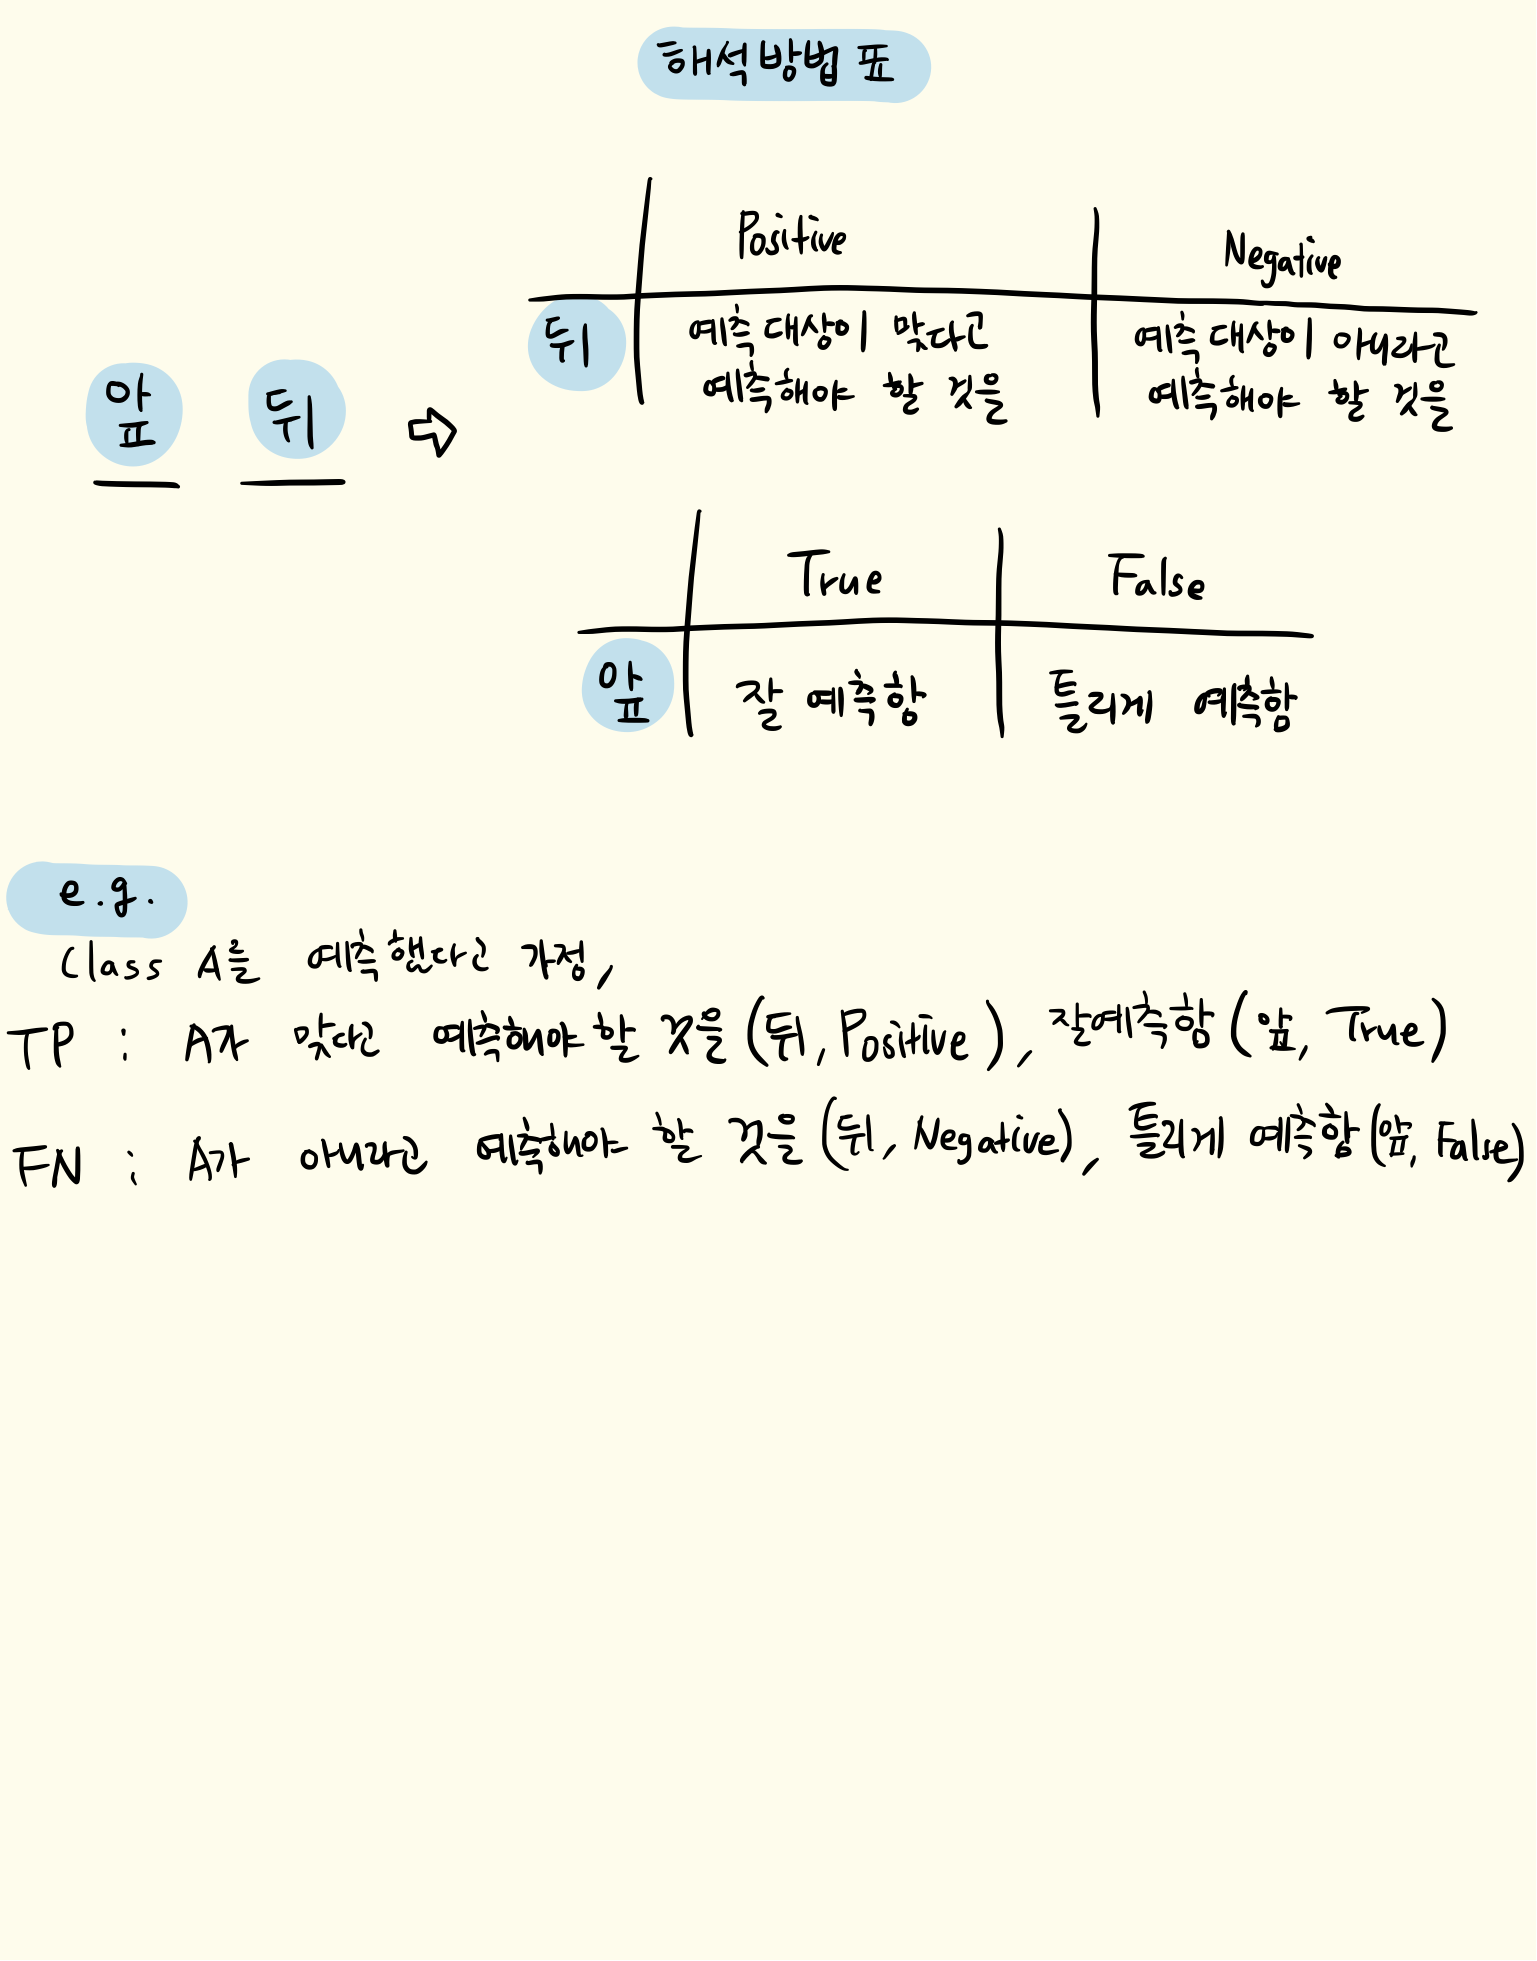 해석방법 표
Positive Negative
뒤 예측 대상이 맞다고 예측 대상이 아니라고
예측해야 할 것을 예측해야 할 것을
앞 뒤 ⇨
True False
앞 잘 예측함 틀리게 예측함
e.g.
Class A를 예측했다고 가정,
TP : A가 맞다고 예측해야 할 것을 (뒤, Positive), 잘예측함 (앞, True)
FN : A가 아니라고 예측해야 할 것을 (뒤, Negative), 틀리게 예측함 (앞, False)